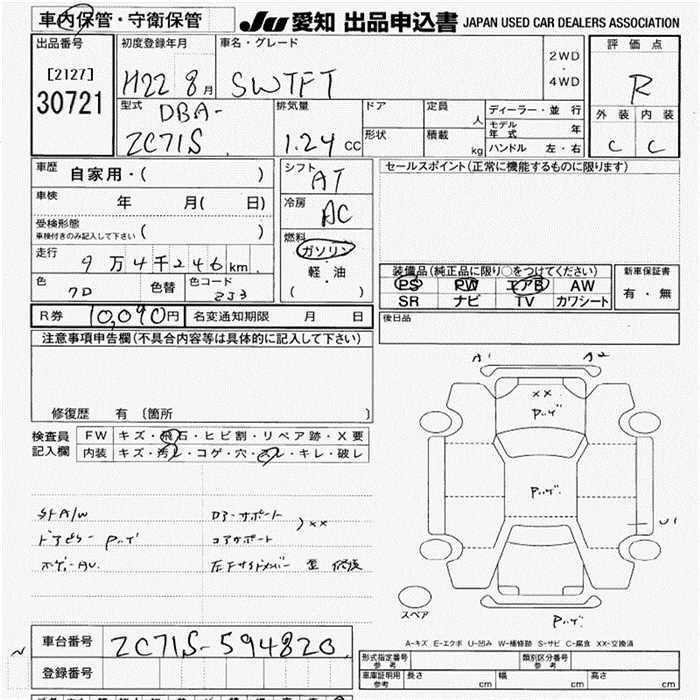 車内保管・守衛保管
JU 愛知 出品申込書 JAPAN USED CAR DEALERS ASSOCIATION
出品番号
[2127]
30721
初度登録年月
H22 8月
車名・グレード
SWIFT
2WD
・
4WD
評価点
R
外装 内装
C C
型式
DBA-
ZC71S
排気量
1.24 CC
ドア
定員
人
形状
積載
kg
ディーラー・並行
モデル年式 年
ハンドル 左・右
車歴
自家用・( )
車検
年 月( 日)
受検形態
車検付きのみ記入して下さい ( )
走行
9万4千246km
色
色替
色コード
ZJ3
シフト
AT
冷房
AC
燃料
ガソリン
・
軽・油
( )
セールスポイント(正常に機能するものに限ります)
装備品(純正品に限り○をつけてください)
PS PW エアB AW
SR ナビ TV カワシート
新車保証書
有・無
R券 10,090円 名変通知期限 月 日
後日品
注意事項申告欄(不具合内容等は具体的に記入して下さい)
修復歴 有 〔箇所 〕
検査員
記入欄
FW キズ・飛石・ヒビ割・リペア跡・X要
内装 キズ・汚レ・コゲ・穴・スレ・キレ・破レ
A1 A2
XX
Pハゲ
Pハゲ
U1
スペア
Pハゲ
社A/W
Pハゲ
コアサポート
XX
左Fサイドメンバー 歪 修復
A-キズ E-エクボ U-凹み W-補修跡 S-サビ C-腐食 XX-交換済
車台番号 ZC71S-594820
登録番号
形式指定番号
参考
類別区分番号
参考
車庫証明用
参考
長さ cm 幅 cm 高さ cm